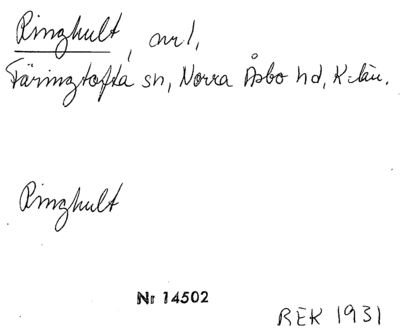 Ringhult, nr 1,
Färingtofta sn, Norra Åsbo hd, K-län.
Ringhult
Nr 14502
REK 1931